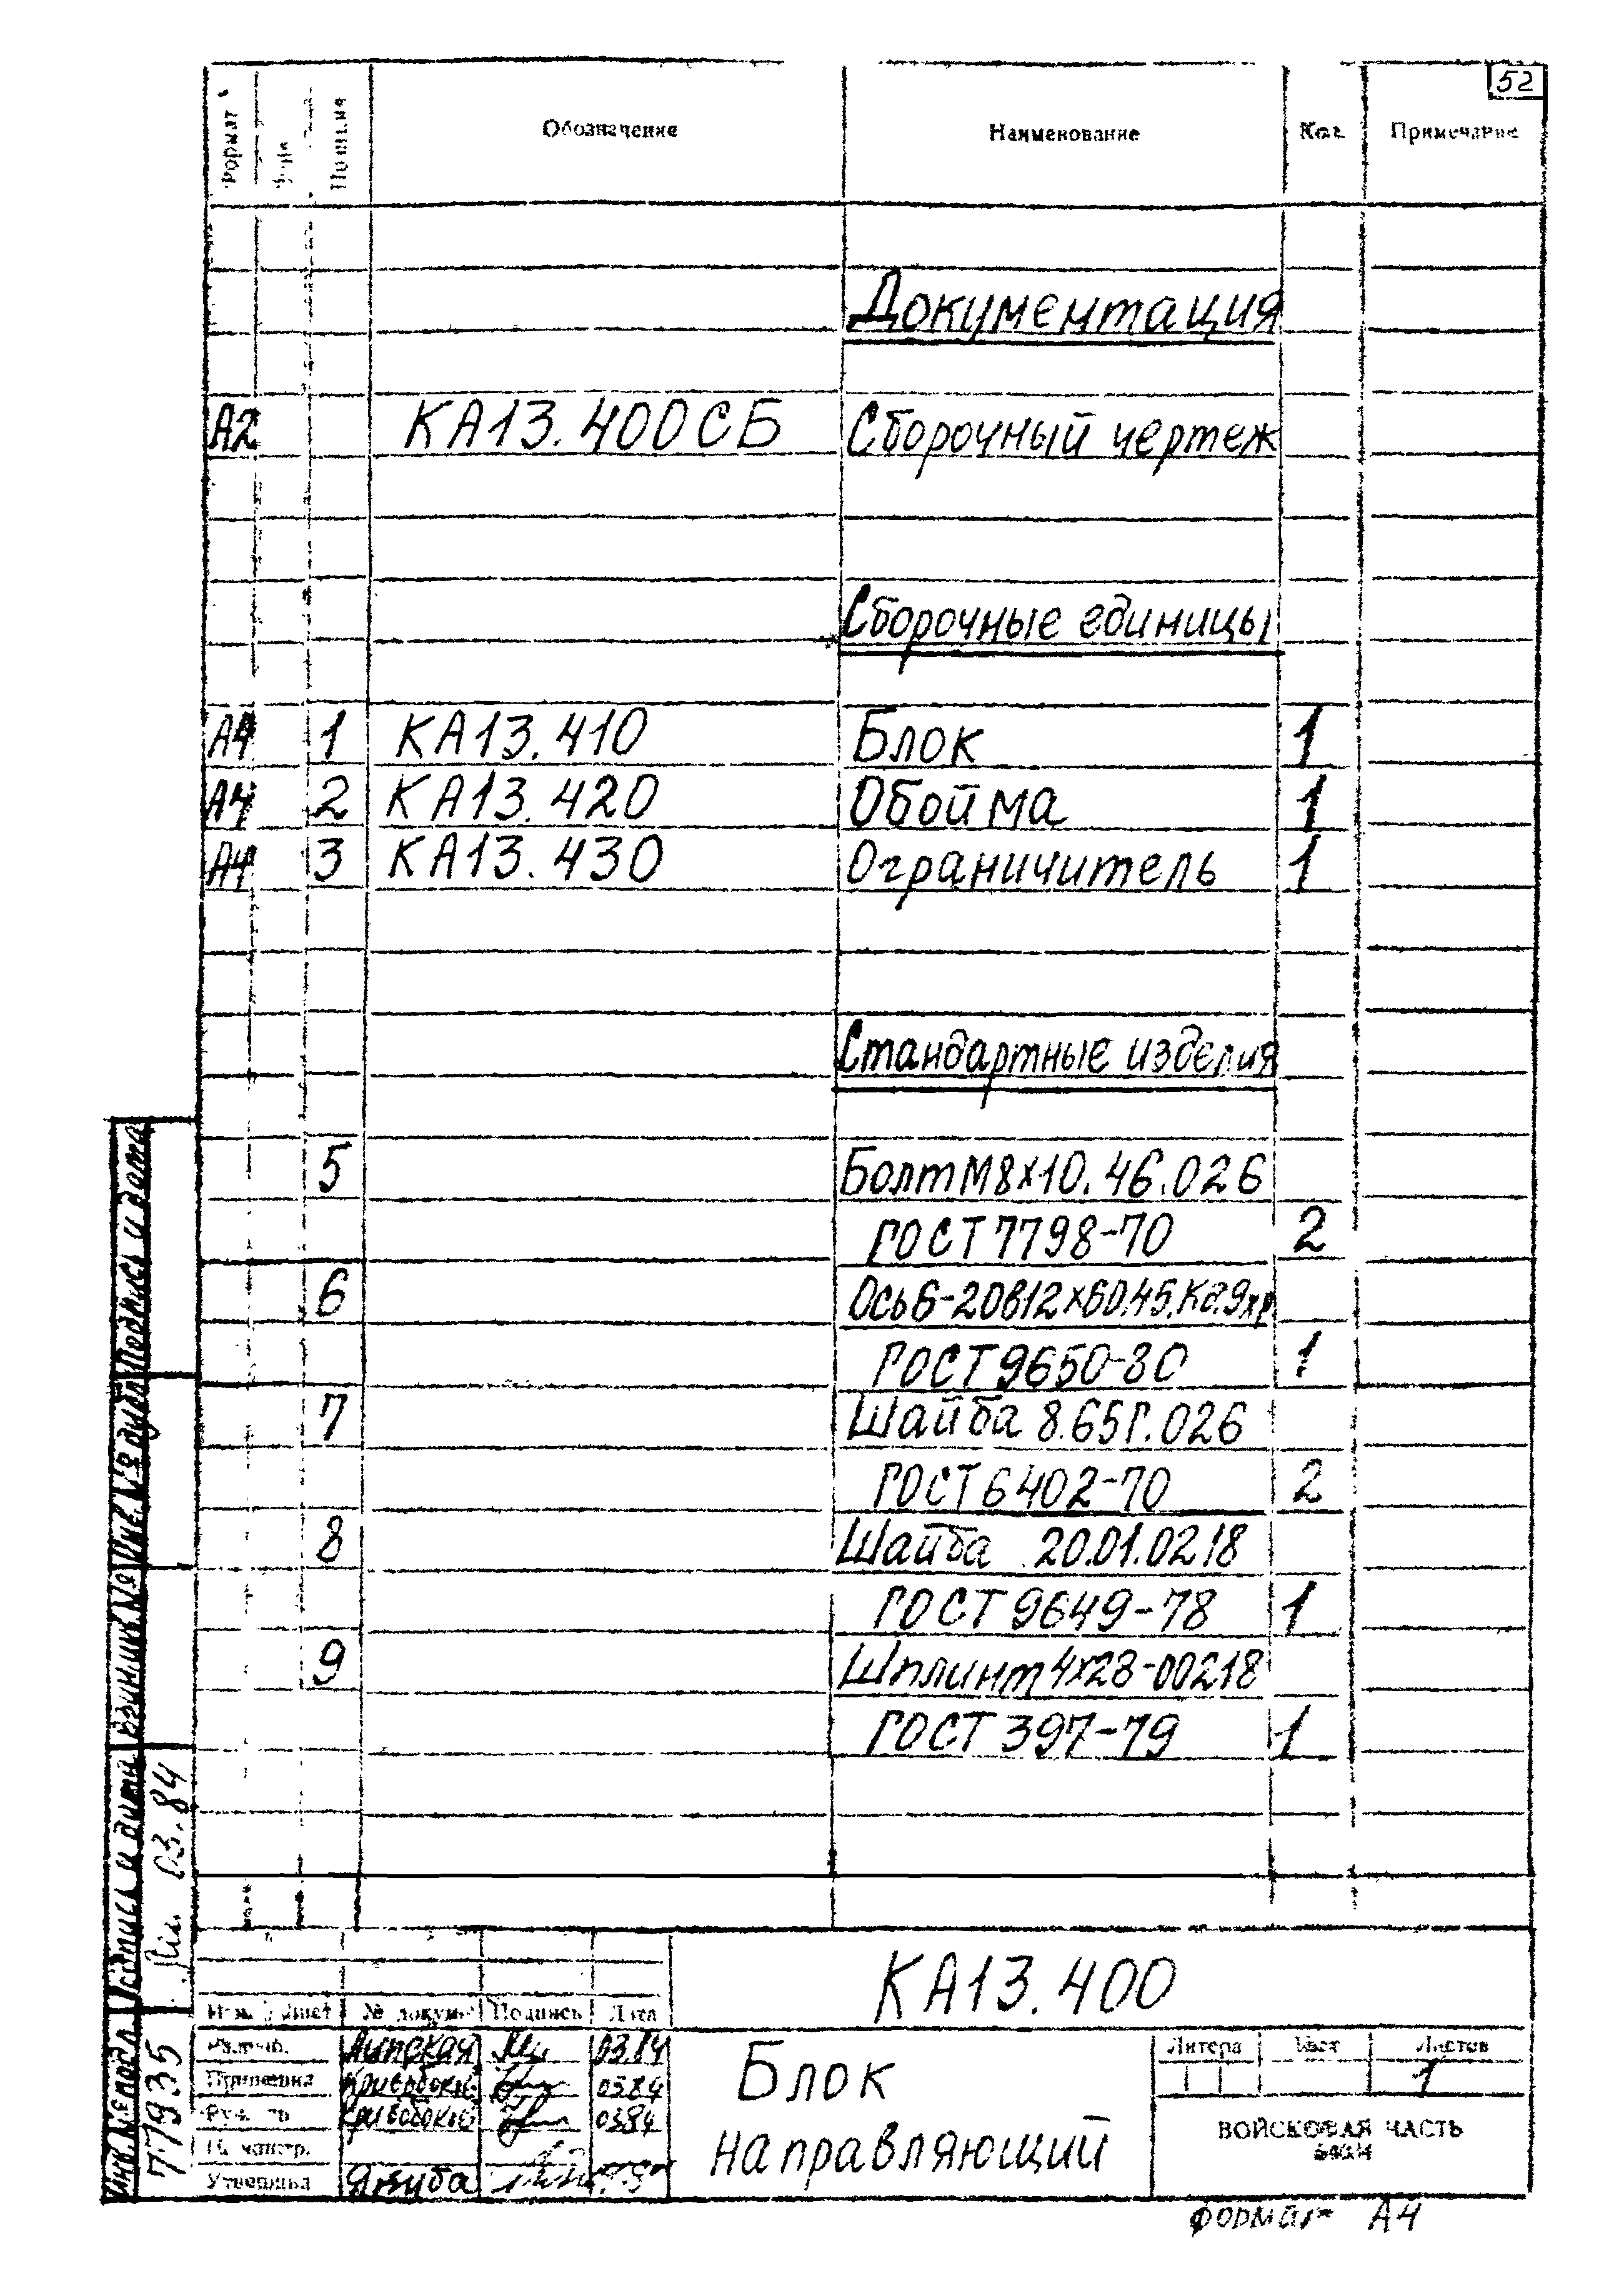 52
Формат Зона Позиция Обозначение Наименование Кол. Примечание
Документация
А2 КА13.400СБ Сборочный чертеж
Сборочные единицы
А4 1 КА13.410 Блок 1
А4 2 КА13.420 Обойма 1
А4 3 КА13.430 Ограничитель 1
Стандартные изделия
5 Болт М8х10.46.026
ГОСТ 7798-70 2
6 Ось 6-20в12х60.45.Кд.9хр
ГОСТ 9650-80 1
7 Шайба 8.65Г.026
ГОСТ 6402-70 2
8 Шайба 20.01.0218
ГОСТ 9649-78 1
9 Шплинт 4х28-00218
ГОСТ 397-79 1
КА13.400
Изм. Лист № докум. Подпись Дата
Разраб. Липская 03.84
Проверил Кривобоков 03.84
Рук. Кривобоков 03.84
Н. контр.
Утвердил Якуба
Блок
направляющий
Литера Лист Листов
1
ВОЙСКОВАЯ ЧАСТЬ
Формат А4
Инв. № подл. Подпись и дата Взам. инв. № Инв. № дубл. Подпись и дата
77935 03.84